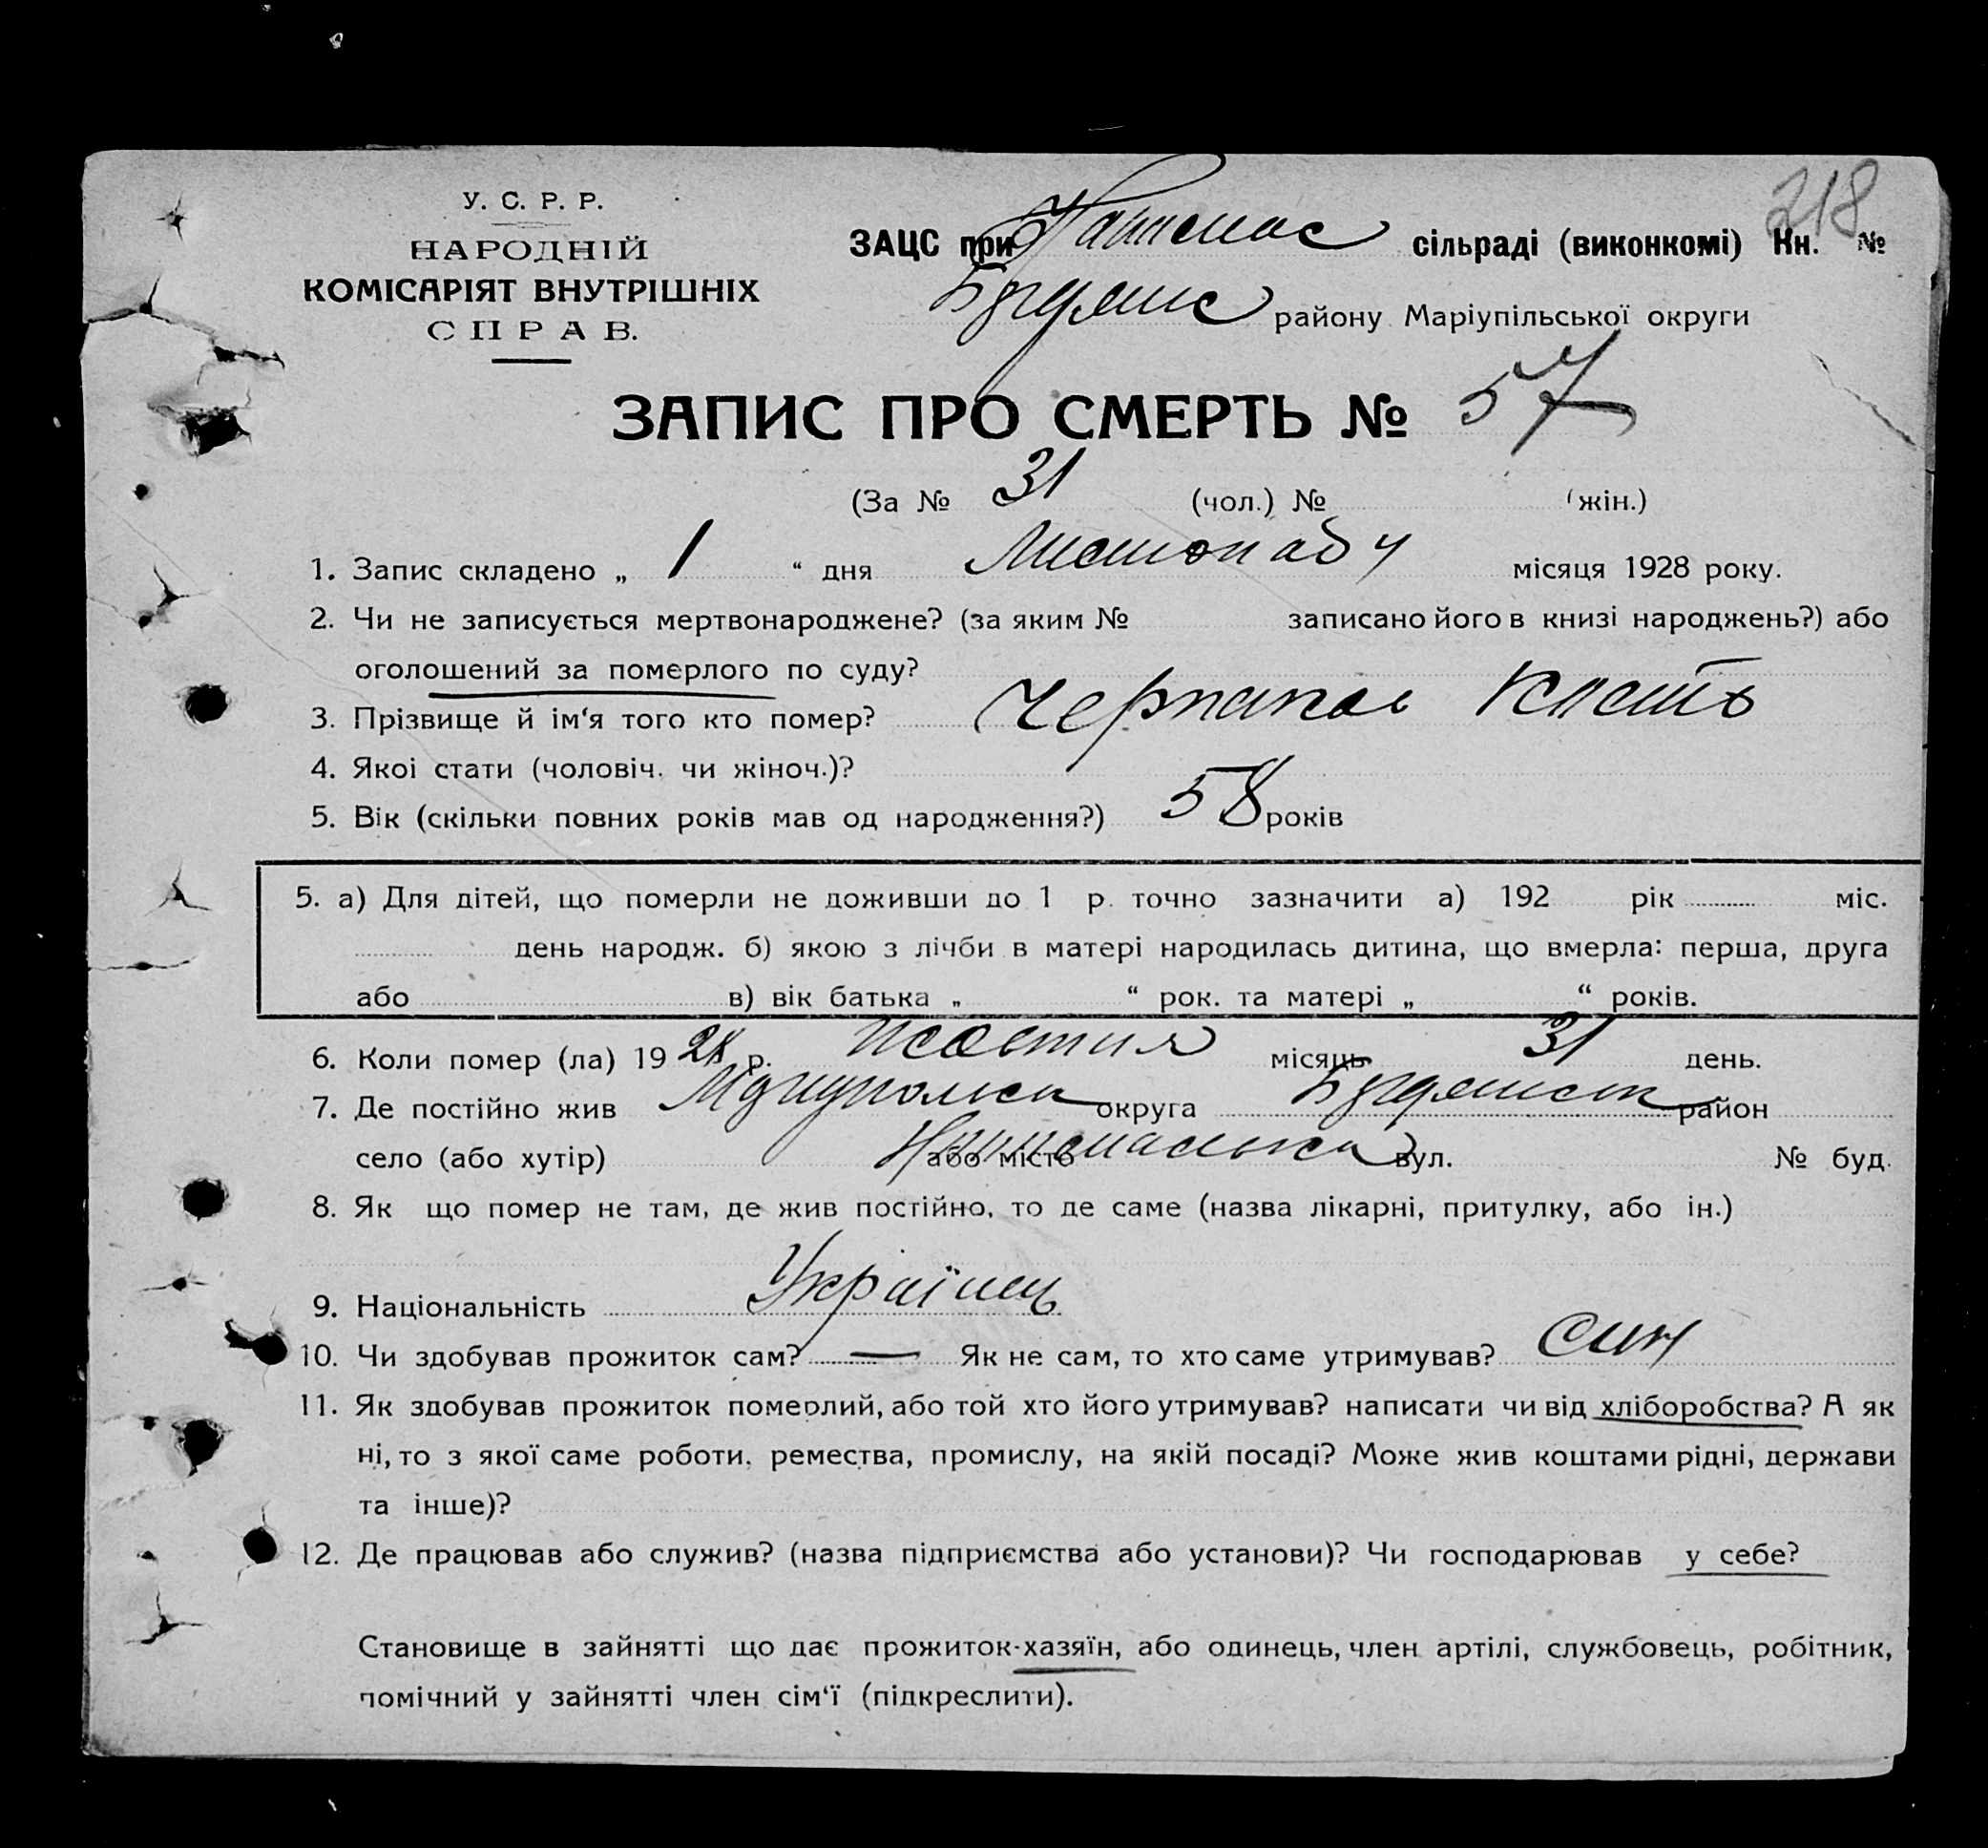 318
У. С. Р. Р.
НАРОДНІЙ
КОМІСАРІЯТ ВНУТРІШНІХ
СПРАВ.
ЗАЦС при сільраді (виконкомі) Кн. №
району Маріупільської округи
ЗАПИС ПРО СМЕРТЬ № 57
(За № 31 (чол.) № (жін.)
1. Запис складено „ 1 “ дня Листопаду місяця 1928 року.
2. Чи не записується мертвонароджене? (за яким № записано його в книзі народжень?) або
оголошений за померлого по суду?
3. Прізвище й ім‘я того кто помер?
4. Якоі стати (чоловіч. чи жіноч.)?
5. Вік (скільки повних років мав од народження?) 58 років
5. а) Для дітей, що померли не доживши до 1 р. точно зазначити а) 192 рік міс.
день народж. б) якою з лічби в матері народилась дитина, що вмерла: перша, друга
або в) вік батька „ “ рок. та матері „ “ років.
6. Коли помер (ла) 19 28 р. Жовтня місяць 31 день.
7. Де постійно жив округа район
село (або хутір) або місто вул. № буд.
8. Як що помер не там, де жив постійно, то де саме (назва лікарні, притулку, або ін.)
9. Національність Українец
10. Чи здобував прожиток сам? — Як не сам, то хто саме утримував? син
11. Як здобував прожиток померлий, або той хто його утримував? написати чи від хліборобства? А як
ні, то з якої саме роботи, ремества, промислу, на якій посаді? Може жив коштами рідні, держави
та інше)?
12. Де працював або служив? (назва підприємства або установи)? Чи господарював у себе?
Становище в зайнятті що дає прожиток-хазяїн, або одинець, член артілі, службовець, робітник,
помічний у зайнятті член сім‘ї (підкреслити).